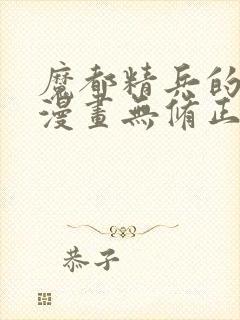 魔都精兵的
漫畫無修正
恭子